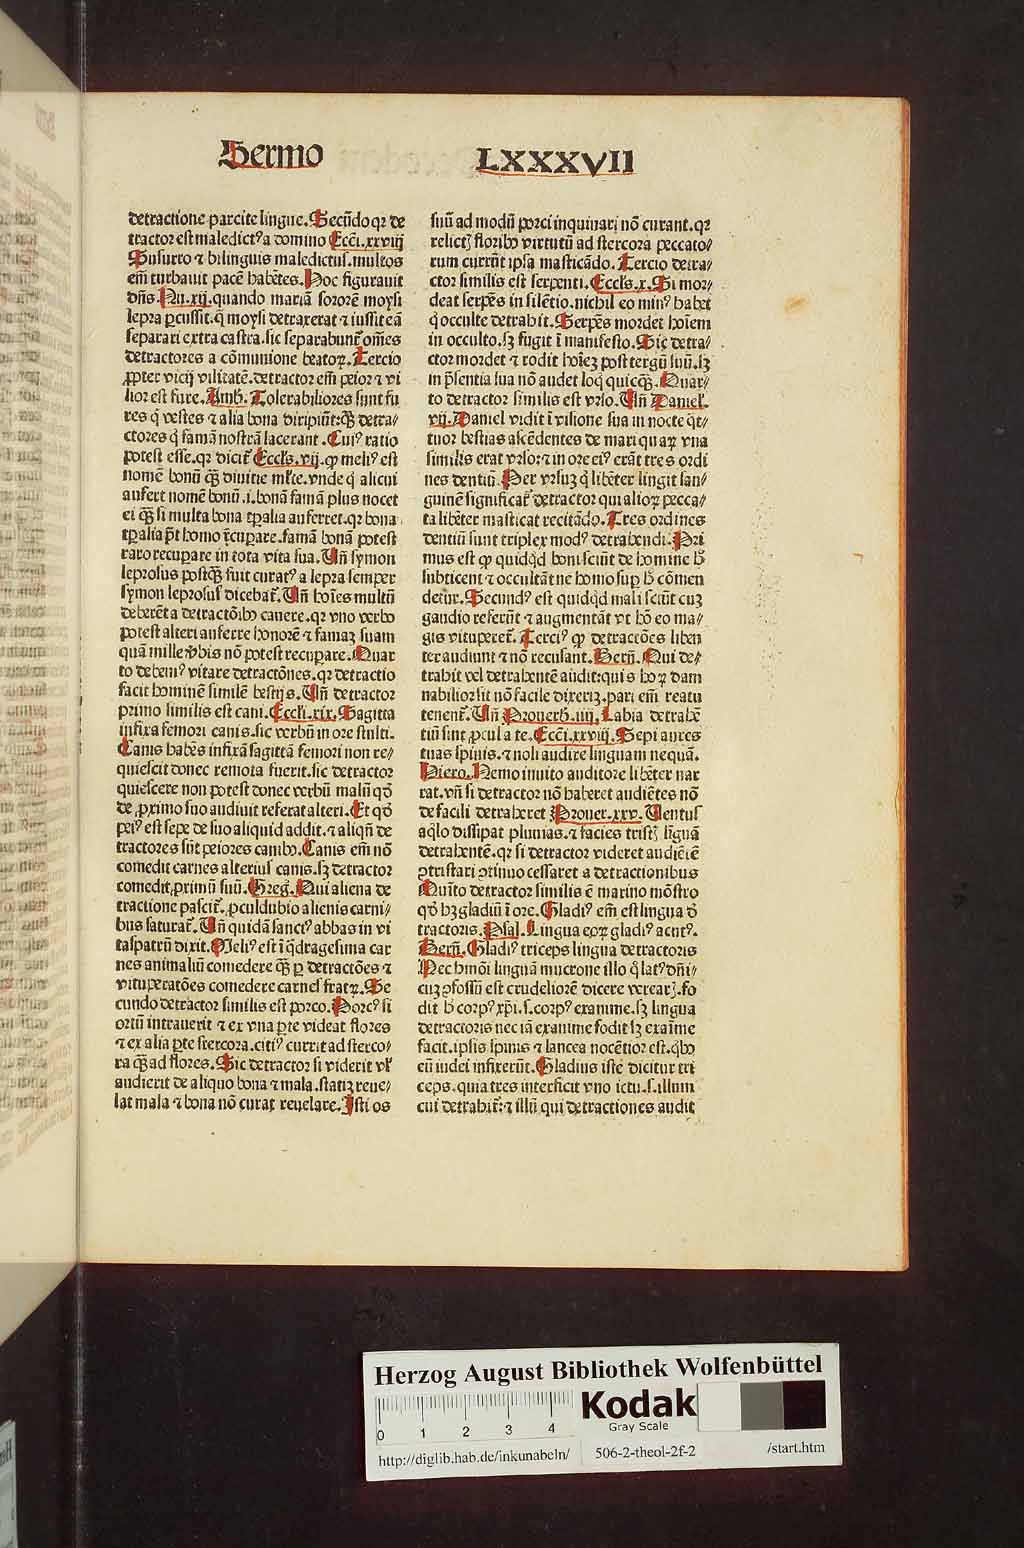 Sermo LXXXVII
detractione parcite lingue. Secũdo qꝛ de
tractor est maledictꝰ a domino Ecci. xxviij
Susurro ⁊ bilinguis maledictus. multos
em̃ turbauit pacẽ habẽtes. Hoc figurauit
dñs. Nu. xij. quando mariã sororẽ moysi
lepra ꝑcussit. q̃ moysi detraxerat ⁊ iussit eã
separari extra castra. sic separabunt̃ om̃es
detractores a cõmunione beatoꝝ. Tercio
ꝓpter vicij vilitatẽ. detractor em̃ peior ⁊ vi
lior est fure. Amb. Tolerabiliores sunt fu
res q̇ vestes ⁊ alia bona diripiũt: q̃ȝ detra⸗
ctores q̇ famã nostrã lacerant. Cuiꝰ ratio
potest esse. qꝛ dicit̃ Eccls. vij. ꝙ meliꝰ est
nomẽ bonũ q̃ȝ diuitie ml̃te. vnde q̇ alicui
aufert nomẽ bonũ .i. bonã famã plus nocet
ei q̃ȝ si multa bona tꝑalia auferret. qꝛ bona
tꝑalia p̃t homo r̃cuꝑare. famã bonã potest
raro recuꝑare in tota vita sua. Uñ symon
leprosus postq̃ȝ fuit curatꝰ a lepra semper
symon leprosus dicebat̃. Uñ hoĩes multũ
deberẽt a detractõibꝰ cauere. qꝛ vno verbo
potest alteri auferre honorẽ ⁊ famaȝ suam
quã mille ṽbis nõ potest recuꝑare. Quar
to debemꝰ vitare detractões. qꝛ detractio
facit hominẽ similẽ bestijs. Uñ detractor
primo similis est cani. Eccli. xix. Sagitta
infixa femori canis. sic verbũ in ore stulti.
Canis habẽs infixã sagittã femori non re⸗
quiescit donec remota fuerit. sic detractor
quiescere non potest donec verbũ malũ qḋ
de ꝓximo suo audiuit referat alteri. Et qḋ
peiꝰ est sepe de suo aliquid addit. ⁊ aliqñ de
tractores sũt peiores canibꝰ. Canis em̃ nõ
comedit carnes alterius canis. sȝ detractor
comedit ꝓximũ suũ. Greg. Qui aliena de
tractione pascit̃. ꝓculdubio alienis carni⸗
bus saturat̃. Uñ quidã sanctꝰ abbas in vi
taspatrũ dixit. Meliꝰ est ĩ q̇dragesima car
nes animaliũ comedere q̃ȝ ꝑ detractões ⁊
vituperatões comedere carnes fratꝝ. Se
cundo detractor similis est porco. Porcꝰ si
ortũ intrauerit ⁊ ex vna ꝑte videat flores
⁊ ex alia ꝑte stercora. citiꝰ currit ad sterco⸗
ra q̃ȝ ad flores. Sic detractor si viderit vl̃
audierit de aliquo bona ⁊ mala. statiȝ reue⸗
lat mala ⁊ bona nõ curat reuelare. Isti os
suũ ad modũ porci inquinari nõ curant. qꝛ
relictȷ floribꝰ virtutũ ad stercora peccato⸗
rum currũt ipsa masticãdo. Tercio detra⸗
ctor similis est serpenti. Eccls. x. Si mor⸗
deat serpẽs in silẽtio. nichil eo minꝰ habet
q̇ occulte detrahit. Serpẽs mordet hoĩem
in occulto. sȝ fugit ĩ manifesto. Sic detra⸗
ctor mordet ⁊ rodit hoĩeȝ post tergũ suũ. sȝ
in p̃sentia sua nõ audet loq̇ quicq̃ȝ. Quar⸗
to detractor similis est vrso. Uñ Daniel.
vij. Daniel vidit ĩ visione sua in nocte q̃t⸗
tuor bestias ascẽdentes de mari quaꝝ vna
similis erat vrso: ⁊ in ore eiꝰ erãt tres ordi
nes dentiũ. Per vrsuȝ q̇ libẽter lingit san⸗
guinẽ significat̃ detractor qui alioꝝ pecca⸗
ta libẽter masticat recitãdo. Tres ordines
dentiũ sunt triplex modꝰ detrahendi. Pri
mus est ꝙ quidq̇d boni sciũt de homine h̃
subticent ⁊ occultãt ne homo suꝑ h̃ cõmen
det̃ur. Secundꝰ est quidq̇d mali sciũt cuȝ
gaudio referũt ⁊ augmentãt vt hõ eo ma⸗
gis vituperet̃. Terciꝰ ꝙ detractões liben
ter audiunt ⁊ nõ recusant. Bern̄. Qui de⸗
trahit vel detrahentẽ audit: quis hoꝝ dam
nabilior sit nõ facile dixeriȝ. pari em̃ reatu
tenent̃. Uñ Prouerb. iiij. Labia detrahẽ
tiũ sint ꝓcul a te. Ecci. xxviij. Sepi aures
tuas spinis. ⁊ noli audire linguam nequã.
Hiero. Nemo inuito auditore libẽter nar
rat. vñ si detractor nõ haberet audiẽtes nõ
de facili detraheret Prouer. xxv. Uentus
aq̇lo dissipat pluuias. ⁊ facies tristȷ linguã
detrahentẽ. qꝛ si detractor videret audiẽtẽ
ↄtristari ↄtinuo cessaret a detractionibus
Quĩto detractor similis ẽ marino mõstro
qḋ hȝ gladiũ ĩ ore. Gladiꝰ em̃ est lingua ḋ
tractoris. Psal. Lingua eoꝝ gladiꝰ acutꝰ.
Bern̄. Gladiꝰ triceps lingua detractoris
Nec hmõi linguã mucrone illo q̇ latꝰ dñi⸗
cuȝ ↄfossũ est crudeliorẽ dicere vereaȷ̃. fo
dit h̃ corpꝰ xp̃i. s. corpꝰ exanime. sȝ lingua
detractoris nec iã exanime fodit sȝ exaĩme
facit. ipsis spinis ⁊ lancea nocẽtior est. q̇bꝰ
eũ iudei infixerũt. Gladius iste dicitur tri
ceps. quia tres interficit vno ictu. s. illum
cui detrahit̃: ⁊ illũ qui detractiones audit
Herzog August Bibliothek Wolfenbüttel
0 1 2 3 4
Kodak
Gray Scale
http://diglib.hab.de/inkunabeln/ 506-2-theol-2f-2 /start.htm